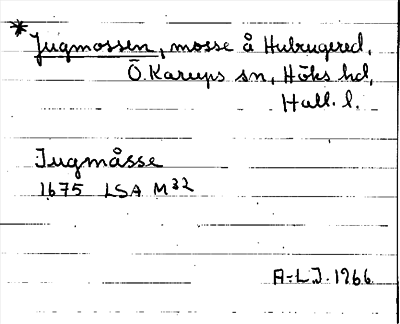 * Jugmossen, mosse å Hubrugered,
Ö. Karups sn, Höks hd,
Hall. l.
Jugmåsse
1675 LSA M32
A-L.J. 1966